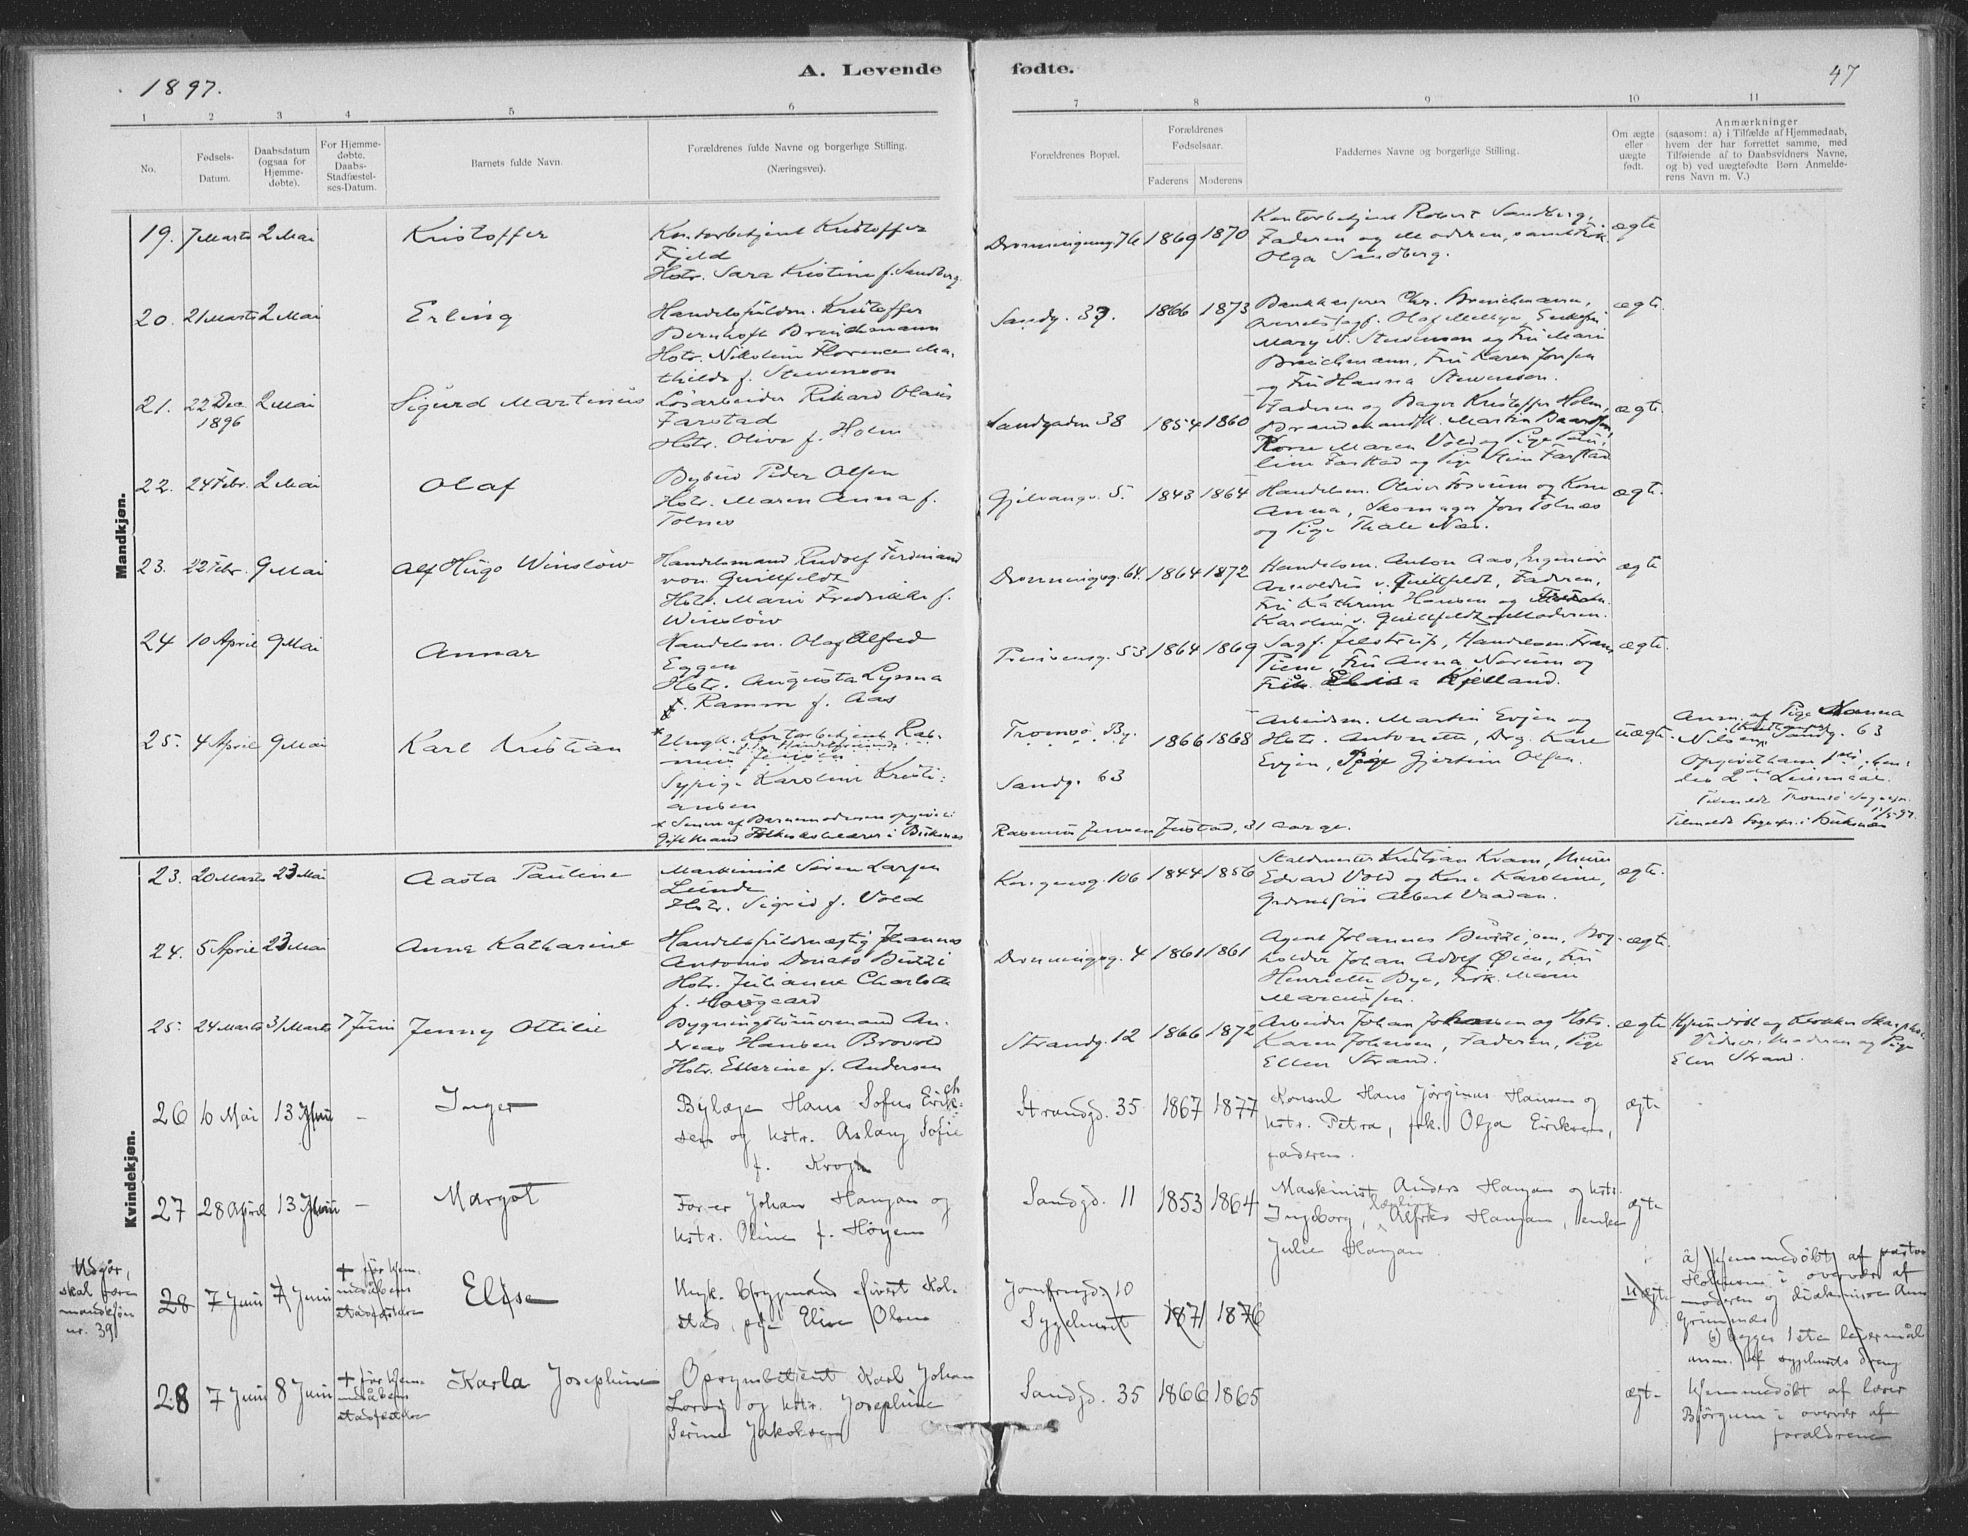 1897.
A. Levende fødte.
47
1 2 3 4 5 6 7 8 9 10 11
No.
Fødsels-
Datum.
Daabsdatum
(ogsaa for
Hjemme-
døbte).
For Hjemme-
døbte.
Daabs-
Stadfæstel-
ses-Datum.
Barnets fulde Navn.
Forældrenes fulde Navne og borgerlige Stilling.
(Næringsvei).
Forældrenes Bopæl.
Forældrenes
Fødselsaar.
Faderens Moderens
Faddernes Navne og borgerlige Stilling.
Om ægte
eller
uægte
født.
Anmærkninger
(saasom: a) i Tilfælde af Hjemmedaab,
hvem der har forrettet samme, med
Tilføiende af to Daabsvidners Navne,
og b) ved uægtefødte Børn Anmelde-
rens Navn m. V.)
Mandkjøn.
19. 7 Marts 2 Mai Kristoffer
Kontorbetjent Kristoffer
Fjeld
Hstr. Sara Kristine f. Sandberg.
Dronningensg 76 1869 1870
Kontorbetjent Robert Sandberg,
Faderen og Moderen, samt Frk.
Olga Sandberg.
ægte
20. 21 Marts 2 Mai Erling
Handelsfuldm. Kristoffer
Bernhoft Breichmann
Hstr. Nikoline Florence Ma-
thilde f. Stevenson
Sandg. 37. 1866 1873
Bankkasserer Chr. Breichmann,
Overretssagf. Olaf
Mary N. Stevenson og Fru Marie
Breichmann, Fru Karen Jensen
og Fru Hanna Stevenson.
ægte.
21. 22 Dec. 2 Mai Sigurd Martinius
1896
Løsarbeider Rikard Olaus
Farstad
Hstr. Oliva f. Holm
Sandgaden 38 1854 1860
Faderen og Bager Kristoffer Holm,
Brandmandsk. Martin
Kone Maren Vold og Pige Pau-
line Farstad og Pige Farstad
ægte.
22. 24 Febr. 2 Mai Olaf
Bybud Peder Olsen
Hstr. Maren Anna f.
Tolnes
Gjelvangv. 5. 1843 1864
Handelsm. Oliver og Kone
Anna, Skomager Jon Tolnæs
og Pige Thale Næs.
ægte.
23. 22 Febr. 9 Mai Alf Hugo Winslöw
Handelsmand Rudolf Ferdinand
von Quillfeldt
Hstr. Marie Fredrikke f.
Winslöw
Dronningsg. 64. 1864 1872
Handelsm. Anton Aas, Ingeniør
v. Quillfeldt, Faderen,
Fru Kathrine Hansen og
Karoline v. Quillfeldt og Moderen.
ægte
24 10 April 9 Mai Annar
Handelsm. Olaf Alfred
Eggen
Hstr. Augusta Lyssna
f. Ramm f. Aas
53 1864 1869
Sagf. Jelstrup, Handelsm. Frans
Piene, Fru Anna Norum og
Frk. Elisa Kjelland.
ægte.
25. 4 April 9 Mai Karl Kristian
* Ungk. Kontorbetjent Ras-
mus Jensen
Sypige Karoline Kristi-
ansen
* Senere af Barnemoderen opgivet:
Gift Mand i Birksnes
Tromsø By.
Sandg. 63
Rasmus Jensen Justad, 31 Aar gl.
1866 1868
Arbeidsm. Martin Evjen og
Hstr. Antonette, Drg. Kare
Evjen, Pige Gjertine Olsen.
uægte.
Anm. af Pige Nanna
Nilsen, Sandg. 63
Opgivet ham 1ste, hen-
des 2det Leiermaal.
Tilmeldt Tromsø Sognepr.
11/5-97.
Tilmeldt Sognepr. i Birksnes
Kvindekjøn.
23. 20 Marts 23 Mai Aasta Pauline
Maskinist Søren Larsen
Leinde
Hstr. Sigrid f. Vold
Kongensg. 106 1844 1856
Staldmester Kristian Kvam, Murer
Edvard Vold og Kone Karoline,
Albert Vaadan.
ægte.
24. 5 April 23 Mai Anna Katharine
Handelsfuldmægtig Johannes
Antonio Donato Buzzi
Hstr. Julianne Charlotte
f. Haugaard
Dronningsg. 4 1861 1861
Agent Johannes Buzzi, sen., Bog-
holder Johan Adolf Øien, Fru
Henriette Bye, Frk. Marie
Marcussen.
ægte.
25. 24 Marts 31 Marts 7 Juni Jenny Ottilie
Bygningstømmermand An-
dreas Hansen Brovold
Hstr. Ellerine f. Andersen
Strandg. 12 1866 1872
Arbeider Johan Johansen og Hstr.
Karen Johansen, Faderen, Pige
Ellen Strand.
ægte
Hjemdøbt af Klokker
Vidner: Moderen og Pige
Elen Strand.
26 6 Mai 13 Juni – Inger
Bylæge Hans Sofus Erik-
sen og hstr. Aslaug Sofie
f. Krogh
Strandgd. 35 1867 1877
Konsul Hans Jørginus Hansen og
hstr. Petra, frk. Olga Eriksen,
faderen.
ægte
27 28 April 13 Juni – Margot
Former Johan Hansen og
hstr. Oline f. Høyem
Sandgd. 11 1853 1864
Maskinist Anders Hansen og hstr.
Ingeborg, Alfred Hansen, enke
Julie Hansen.
ægte
Udgår,
skal være
mandkjøn
nr. 39
28 7 Juni 7 Juni
+ før hjem-
medåbens
stadfæstelse
Elise
Ungk. Brygmand Sivert Kol-
stad, pige Elise Olsen
Jomfrugd. 10
Sygehuset
1871 1876
uægte
a) hjemmedøbt af pastor
i overvær af
moderen og diakonisse Anna
Grimnæs
b) begges 1ste leiermål
anm. af sygehusets dreng
28 7 Juni 8 Juni
+ før hjem-
medåbens
stadfæstelse
Karla Josephine
Opsynsbetjent Karl Johan
Lorvig og hstr. Josephine
Serine Jakobsen
Sandgd. 35 1866 1865
ægte
hjemmedøbt af lærer
Bjørgum i overvær af
forældrene